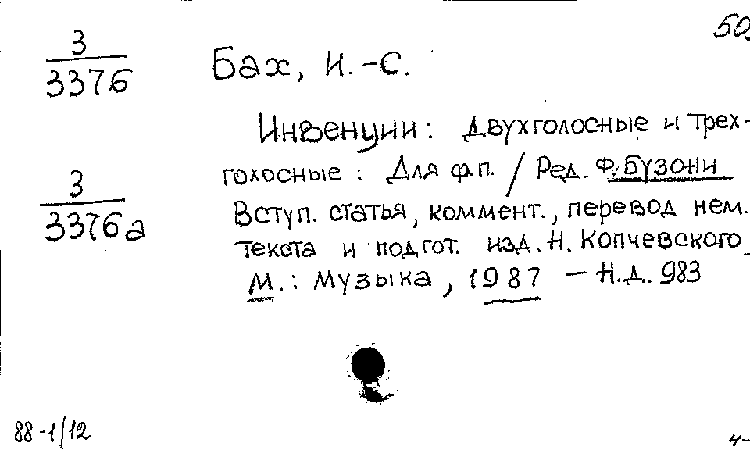 50
3
3376
Бах, И.-С.
Инвенции: Двухголосные и трех-
голосные: Для ф.п. / Ред. Ф. Бузони
3
3376а
Вступ. статья, коммент., перевод нем.
текста и подгот. изд. Н. Копчевского
М.: Музыка, 1987 – Н.д. 983
88-1/12
4-